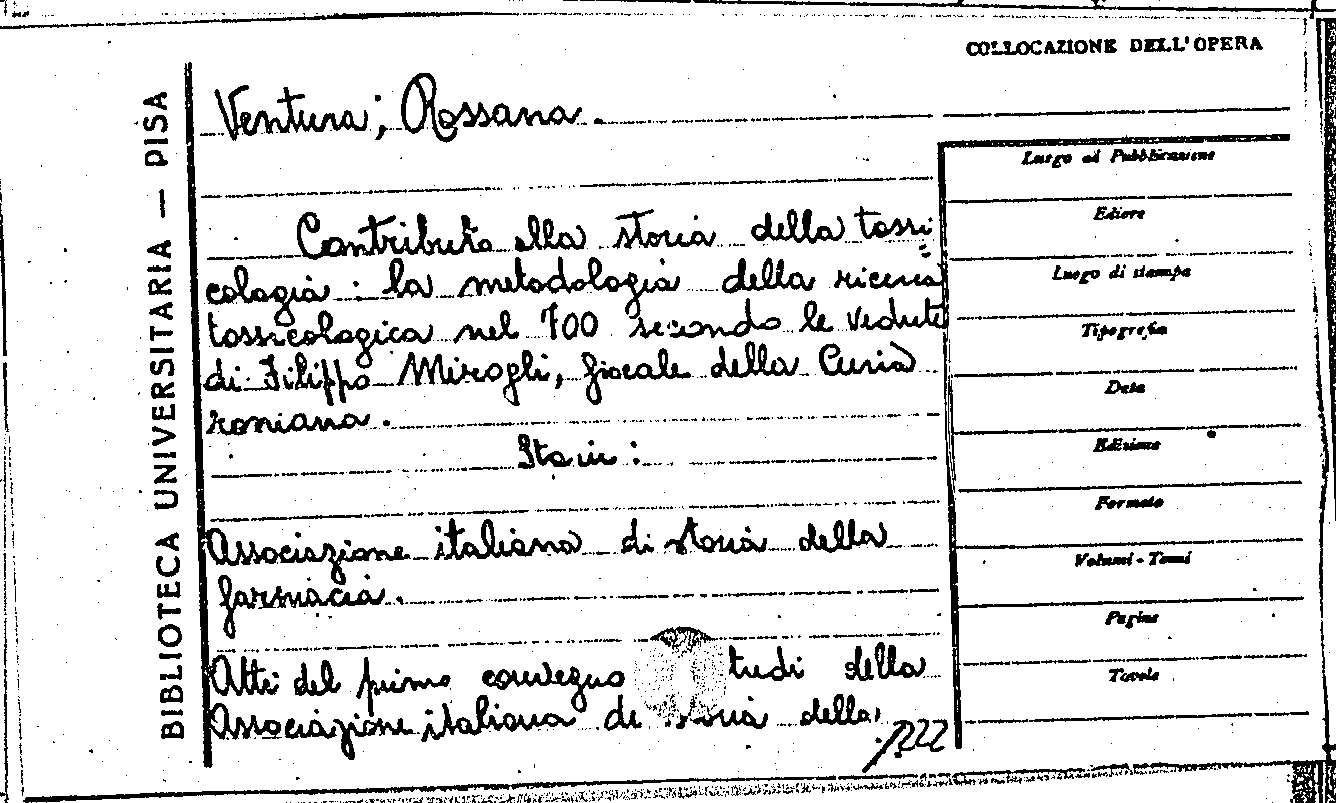 COLLOCAZIONE DELL'OPERA
BIBLIOTECA UNIVERSITARIA — PISA
Ventura; Rossana.
Contributo alla storia della tossi
cologia: la metodologia della ricerca
tossicologica nel 700 secondo le vedute
di Filippo Mirogli, fiscale della Curia
romana.
Sta in:
Associazione italiana di storia della
farmacia.
Atti del primo convegno tudi della
Associazione italiana di storia della
Luogo di Pubblicazione
Editore
Luogo di stampa
Tipografia
Data
Edizione
Formato
Volumi - Tomi
Pagine
Tavole